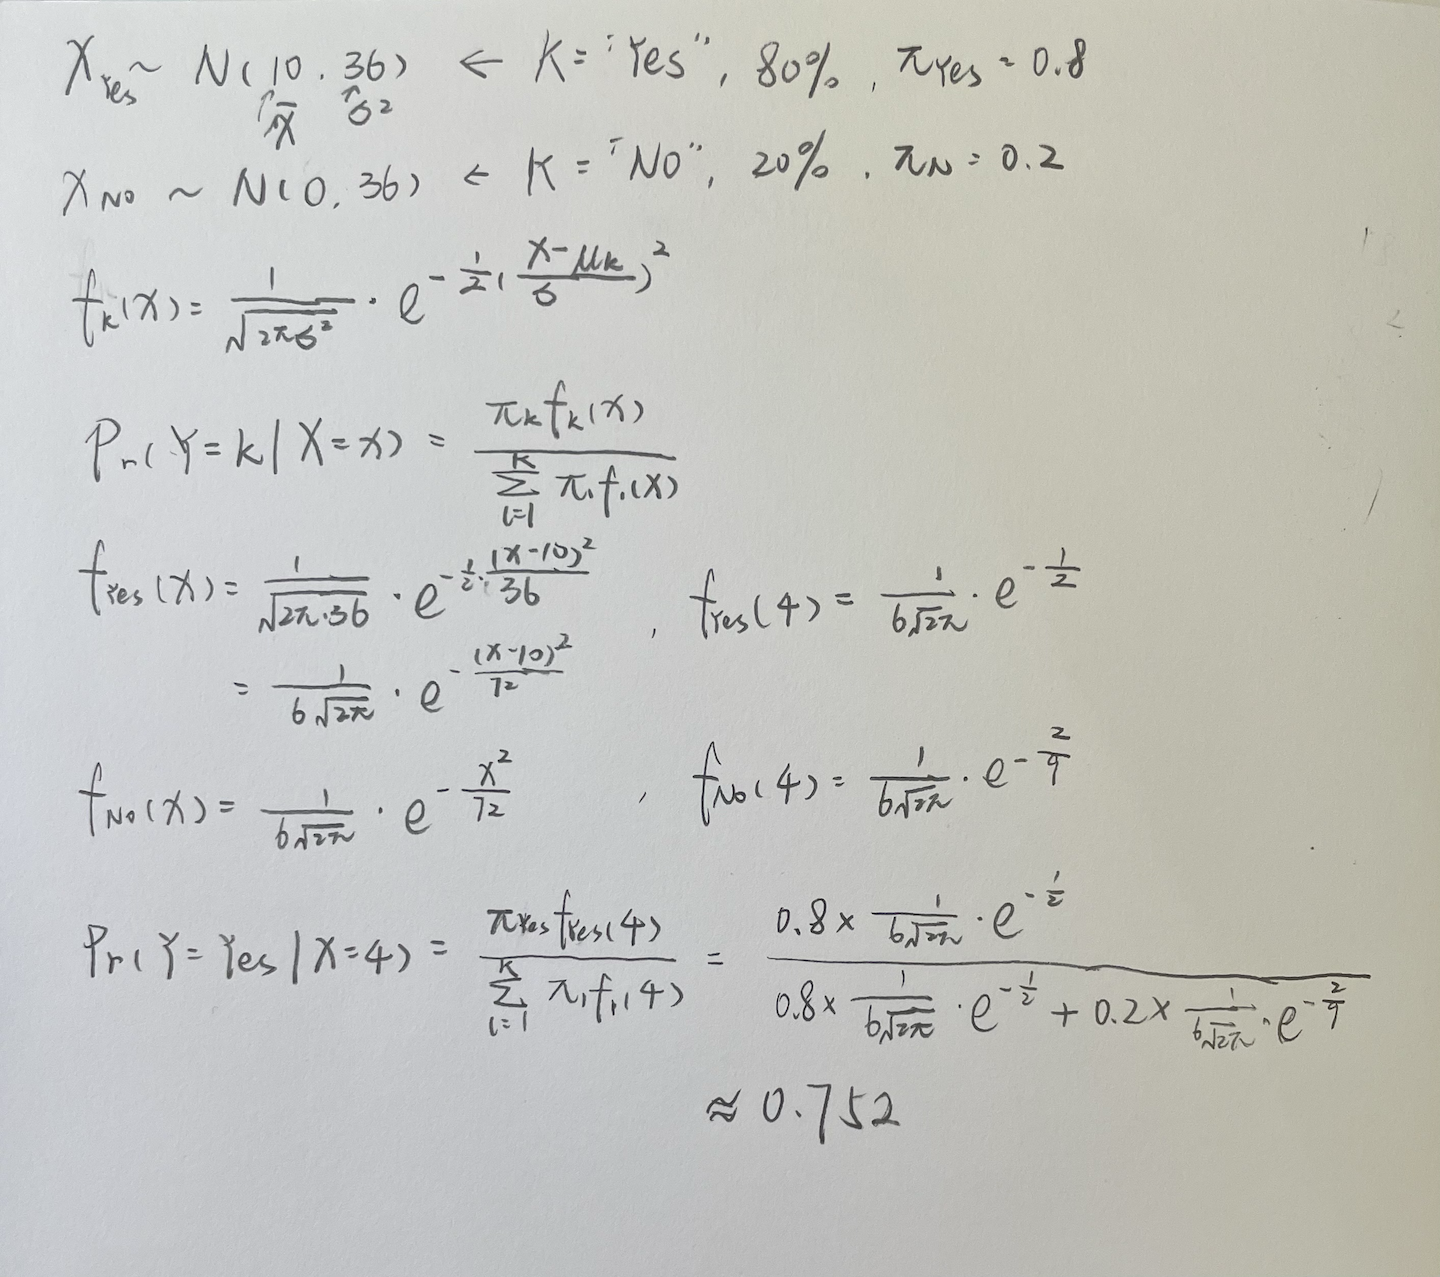 X_Yes ~ N(10, 36) ← K = "Yes", 80%, π_Yes = 0.8
↑ x̄ ↑ σ²
X_NO ~ N(0, 36) ← K = "NO", 20%, π_N = 0.2
f_k(x) = 1/√(2πσ²) · e^(-1/2((x-μ_k)/σ)²)
Pr(Y=k|X=x) = π_k f_k(x) / Σ_{i=1}^{K} π_i f_i(x)
f_Yes(x) = 1/√(2π·36) · e^(-1/2·(x-10)²/36), f_Yes(4) = 1/(6√(2π)) · e^(-1/2)
= 1/(6√(2π)) · e^(-(x-10)²/72)
f_No(x) = 1/(6√(2π)) · e^(-x²/72), f_No(4) = 1/(6√(2π)) · e^(-2/9)
Pr(Y=Yes|X=4) = π_Yes f_Yes(4) / Σ_{i=1}^{K} π_i f_i(4) = (0.8 × 1/(6√(2π)) · e^(-1/2)) / (0.8 × 1/(6√(2π)) · e^(-1/2) + 0.2 × 1/(6√(2π)) · e^(-2/9))
≈ 0.752